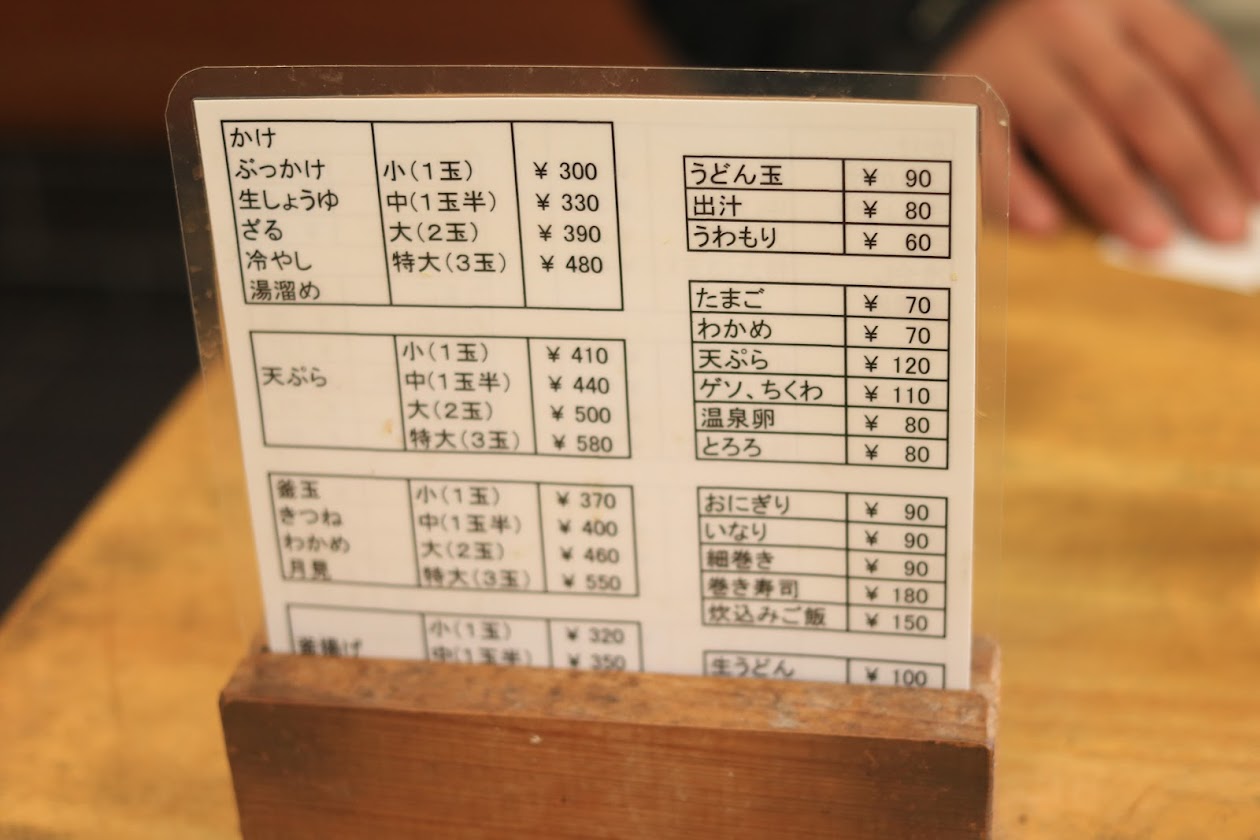 かけ
ぶっかけ 小(1玉) ¥ 300
生しょうゆ 中(1玉半) ¥ 330
ざる 大(2玉) ¥ 390
冷やし 特大(3玉) ¥ 480
湯溜め
天ぷら
小(1玉) ¥ 410
中(1玉半) ¥ 440
大(2玉) ¥ 500
特大(3玉) ¥ 580
釜玉 小(1玉) ¥ 370
きつね 中(1玉半) ¥ 400
わかめ 大(2玉) ¥ 460
月見 特大(3玉) ¥ 550
釜揚げ
小(1玉) ¥ 320
中(1玉半) ¥ 350
うどん玉 ¥ 90
出汁 ¥ 80
うわもり ¥ 60
たまご ¥ 70
わかめ ¥ 70
天ぷら ¥ 120
ゲソ、ちくわ ¥ 110
温泉卵 ¥ 80
とろろ ¥ 80
おにぎり ¥ 90
いなり ¥ 90
細巻き ¥ 90
巻き寿司 ¥ 180
炊込みご飯 ¥ 150
生うどん ¥ 100